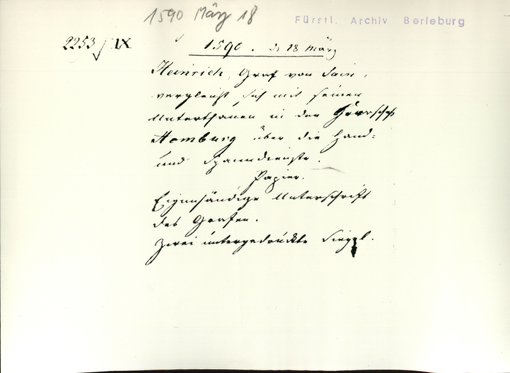 1590 März 18
Fürstl. Archiv Berleburg
2253/IX
1590. d. 18 März
Heinrich, Graf von Sain,
vergleicht sich mit seinen
Unterthanen in der Herrschft
Homburg über die Hand-
und Spanndienste.
Papier.
Eigenhändige Unterschrift
des Grafen.
Zwei untergedrückte Siegel.